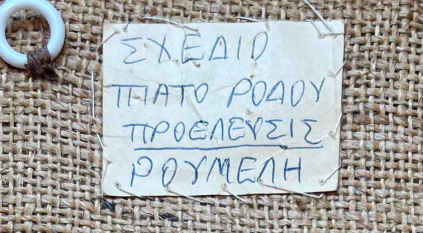 ΣΧΕΔΙΟ
ΠΙΑΤΟ ΡΟΔΟΥ
ΠΡΟΕΛΕΥΣΙΣ
ΡΟΥΜΕΛΗ